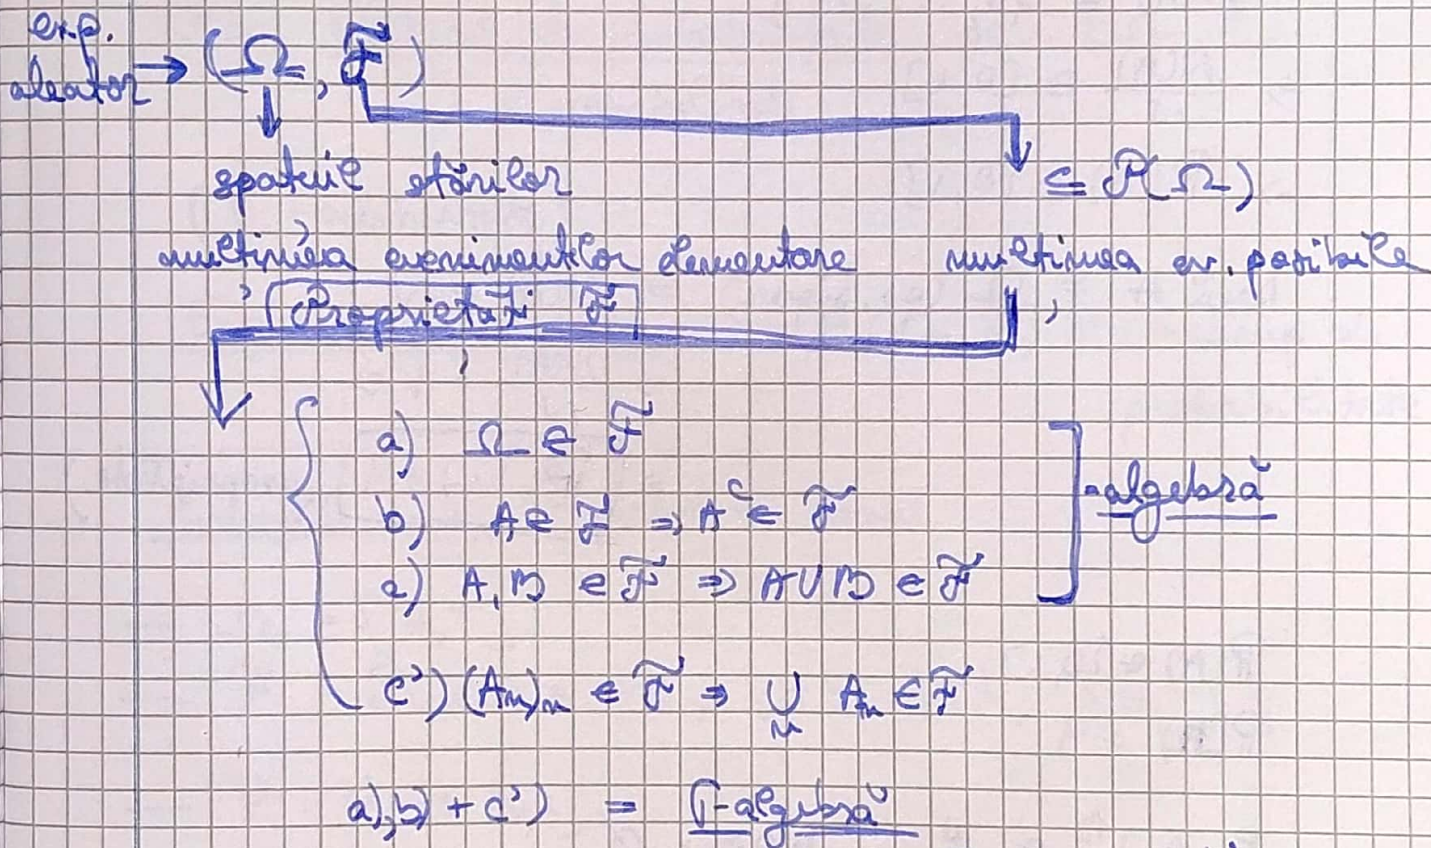 exp.
aleator → (Ω, F)
spațiul stărilor ⊆ P(Ω)
mulțimea evenimentelor elementare mulțimea ev. posibile
Proprietăți F
a) Ω ∈ F
b) A ∈ F ⇒ A^c ∈ F - algebră
c) A, B ∈ F ⇒ A ∪ B ∈ F
c') (Aₙ)ₙ ∈ F ⇒ ∪ₙ Aₙ ∈ F
a), b) + c') = σ-algebră